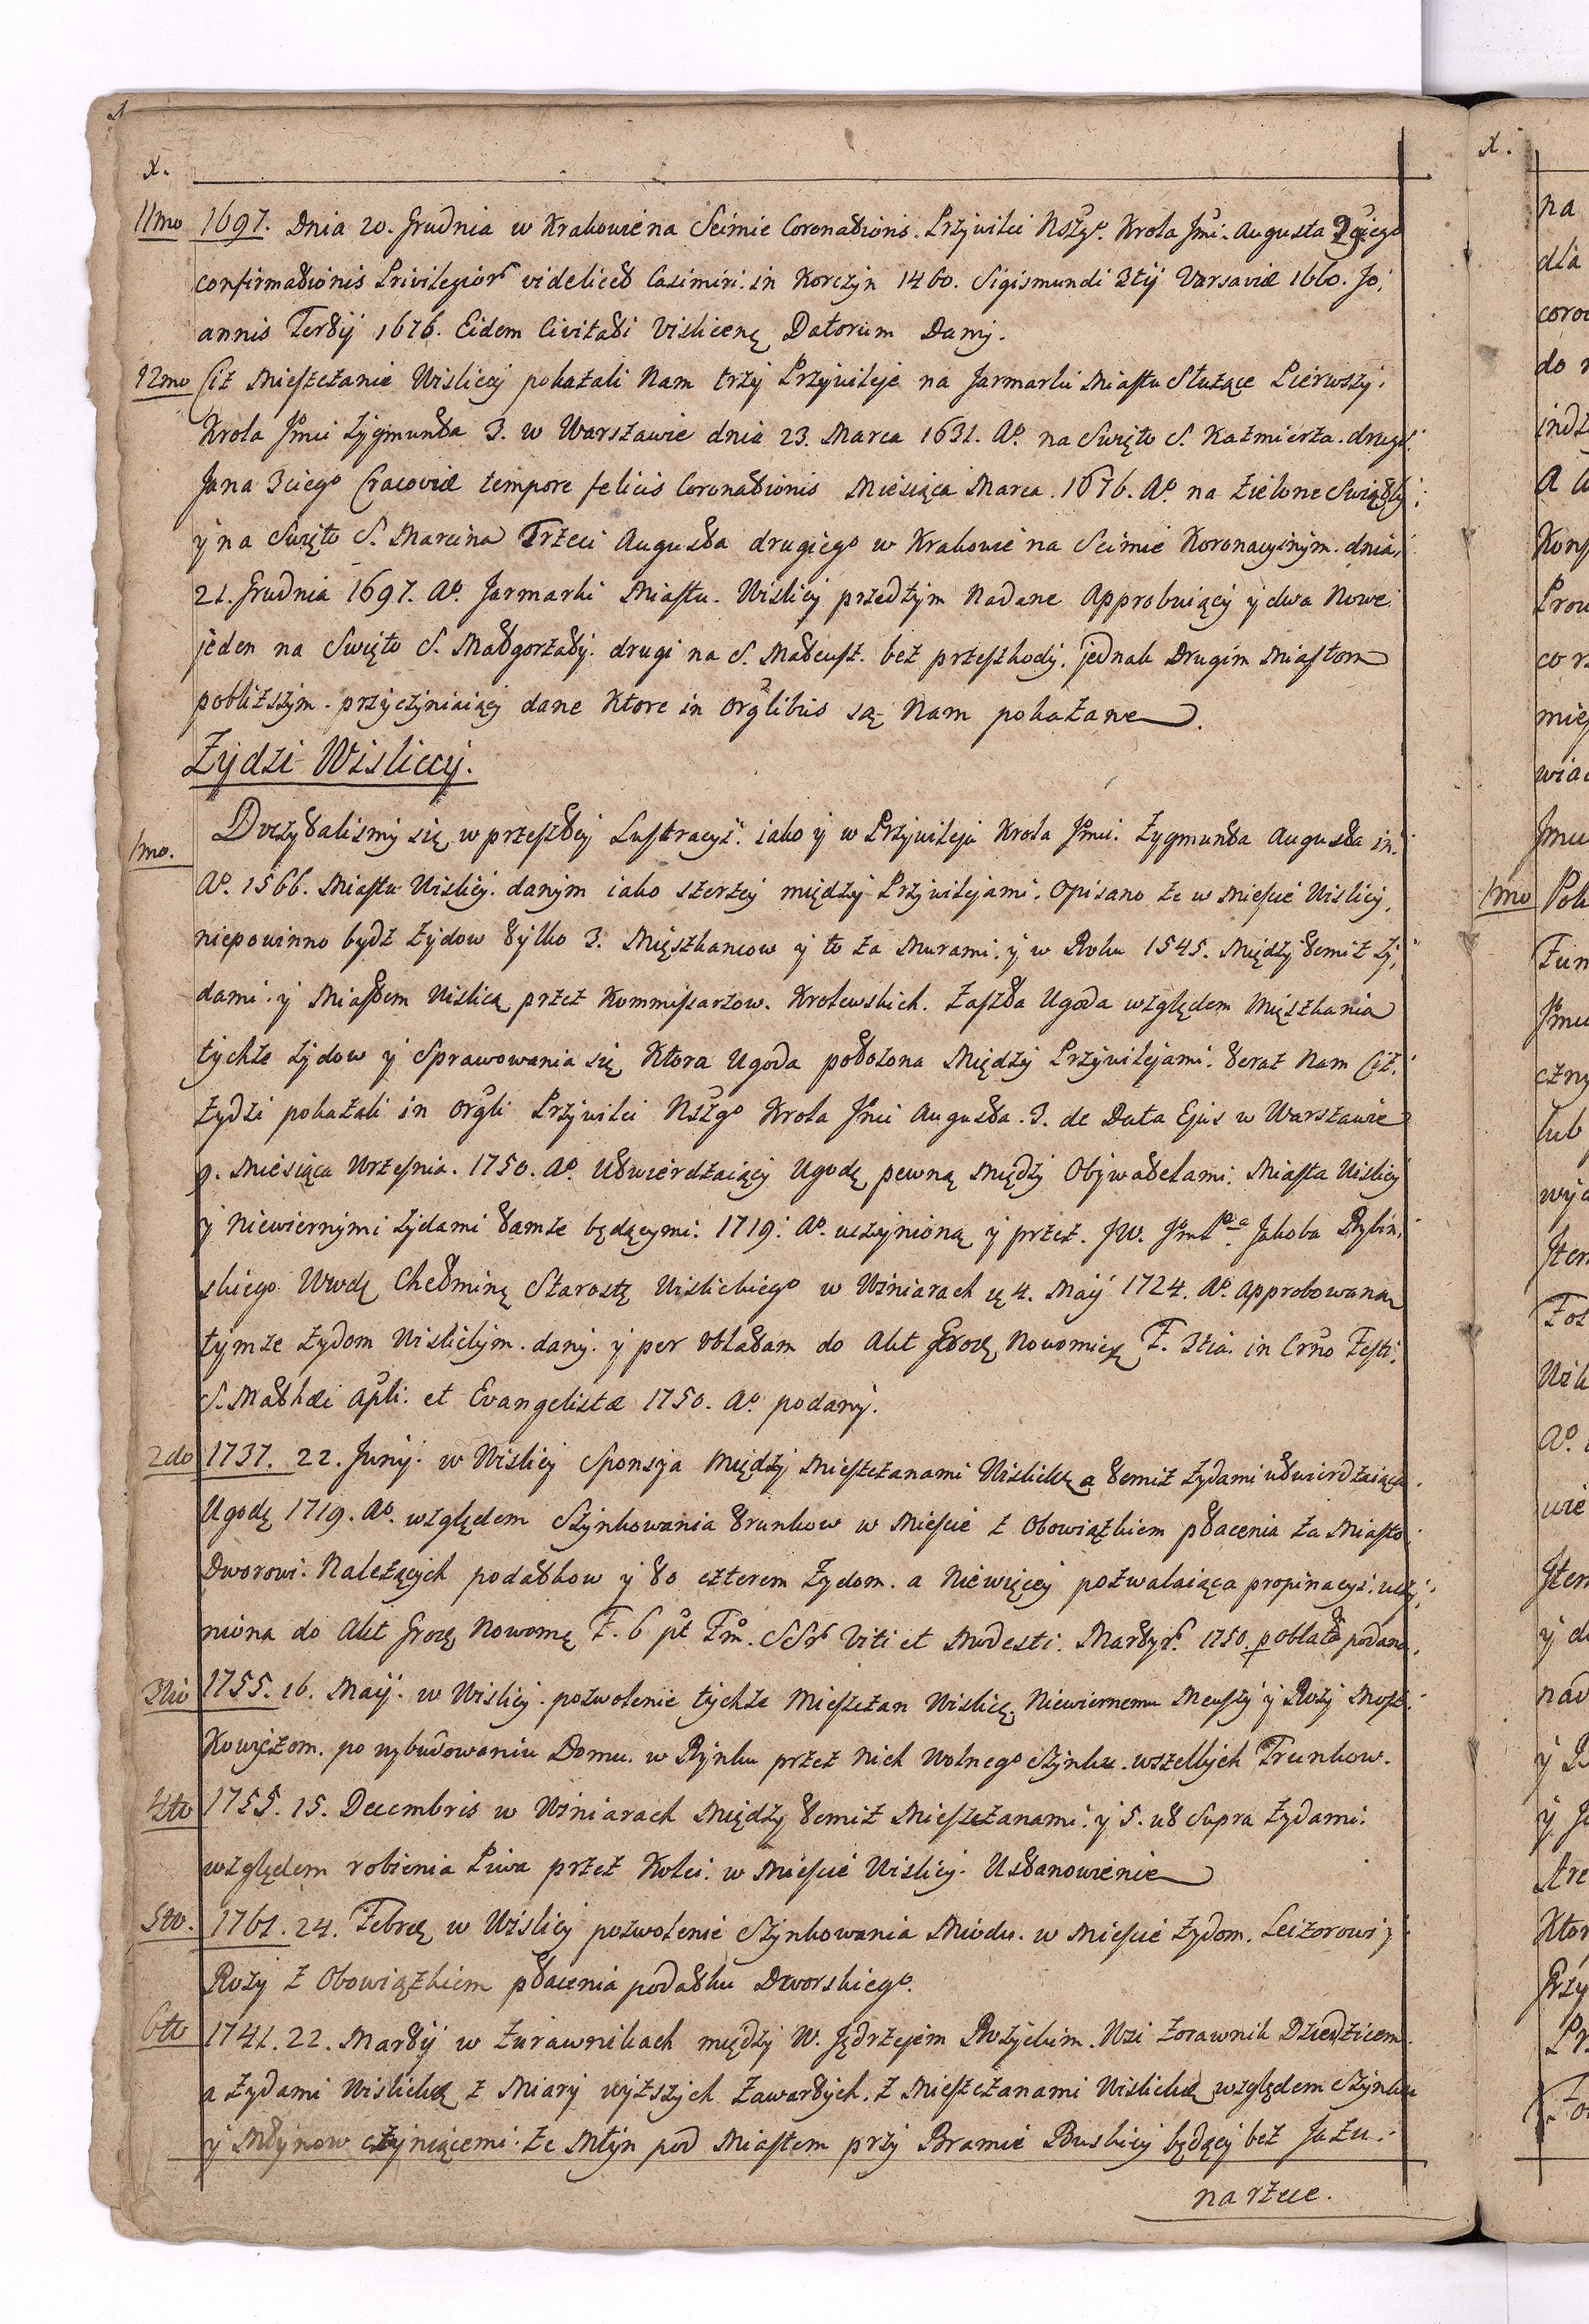 x.
11mo 1697. Dnia 20. Grudnia w Krakowie na Seimie Coronationis. Przywilei Nszgo. Krola Jmci. Augusta 2giego
confirmationis Privilegior videlicet Casimiri. in Korczyn 1460. Sigismundi 3tij Varsaviæ 1660. Jo,
annis Tertij 1676. Eidem Civitati Vislicen Datorum Dany.
12mo Ciż Mieszczanie Wisliccy pokazali Nam trzy Przywileje na Jarmarki Miastu Służące Pierwszy.
Krola Jmci Zygmunta 3. w Warszawie dnia 23. Marca 1631. Ao. na Swięto S. Kazmierza. drugi
Jana 3ciego Cracoviæ tempore felicis Coronationis Miesiąca Marca. 1676. Ao. na Zielone Swiątki
y na Swięto S. Marcina Trzeci Augusta drugiego w Krakowie na Seimie Koronacyinym. dnia
21. Grudnia 1697. Ao. Jarmarki Miastu. Wislicy przedtym Nadane Approbuiący y dwa Nowe
jeden na Swięto S. Małgorzaty. drugi na S. Mateusz. bez przeszkody. jednak Drugim Miastom
pobliższym. przyczyniaiący dane Ktore in orglibus są Nam pokazane.
Zydzi Wisliccy.
1mo. Doczytalismy się w przeszłey Lustracyi. iako y w Przywileju Krola Jmci. Zygmunta Augusta in.
Ao. 1566. Miastu Wislicy. danym iako szerzey między Przywilejami. Opisano że w Miescie Wislicy,
niepowinno bydź Zydow tylko 3. Mięszkancow y to za Murami. y w Roku 1545. Między temiż Zy,
dami. y Miastem Wislicą przez Kommissarzow. Krolewskich. Zaszła Ugoda względem Mięszkania
tychże Zydow y Sprawowania się Ktora Ugoda położona Między Przywilejami. teraz Nam Ciż.
Zydzi pokazali in orgli Przywilei Nszgo Krola Jmci Augusta. 3. de Data Ejus w Warszawie
9. Miesiąca Wrzesnia. 1750. Ao. Utwierdzaiący Ugodę pewną Między Obywatelami. Miasta Wislicy
y Niewiernymi Zydami tamże będącymi. 1719. Ao. uczynioną y przez. JW. Jmc Pa. Jakoba Rybin,
skiego Wwdę Chełminę Starostę Wislickiego w Winiarach 4. Maij 1724. Ao. approbowaną
tymże Zydom Wislickym. dany. y per oblatam do Akt Grodę Nowomieę F. 3tia. in Crno Festi.
S. Mathæi Apli. et Evangelistæ 1750. Ao. podany.
2do 1737. 22. Junij. w Wislicy Sponsya Między Mieszczanami Wislickę a temiż Zydami utwierdzaiąca
Ugodę 1719. Ao. względem Szynkowania trunkow w Miescie z Obowiązkiem płacenia za Miasto
Dworowi. Należących podatkow y to czterem Zydom. a Niewięcey pozwalaiąca propinacyi. uczy,
niona do Akt Grodę Nowomę F. 6 pt Fm. SSr Viti et Modesti. Martyr. 1750. p oblatã podana,
3tio 1755. 16. Maij. w Wislicy. pozwolenie tychże Mieszczan Wislicę. Niewiernemu Meuszy y Rozy Mosz,
Kowiczom. po wybudowaniu Domu. w Rynku przez Nich Wolnego Szynku. wszelkych Trunkow.
4to 1755. 15. Decembris w Winiarach Między temiż Mieszczanami. y 5. ut Supra Zydami.
względem robienia Piwa przez Kolei. w Miescie Wislicy. Ustanowienie
5to. 1761. 24. Febrę w Wislicy pozwolenie Szynkowania Miodu. w Miescie Zydom. Leizorowi y
Rozy z Obowiązkiem płacenia podatku Dworskiego.
6to 1741. 22. Martij w Zurawnikach między W. Jędrzejem Rożyckim. Wsi Zorawnik Dziedzicem.
a Zydami Wislickę z Miary wyższych Zawartych. z Mieszczanami Wislickę względem Szynku
y Młynow czyniącemi. że Młyn pod Miastem przy Bramie Buskiey będący bez Jazu.
na rzece.